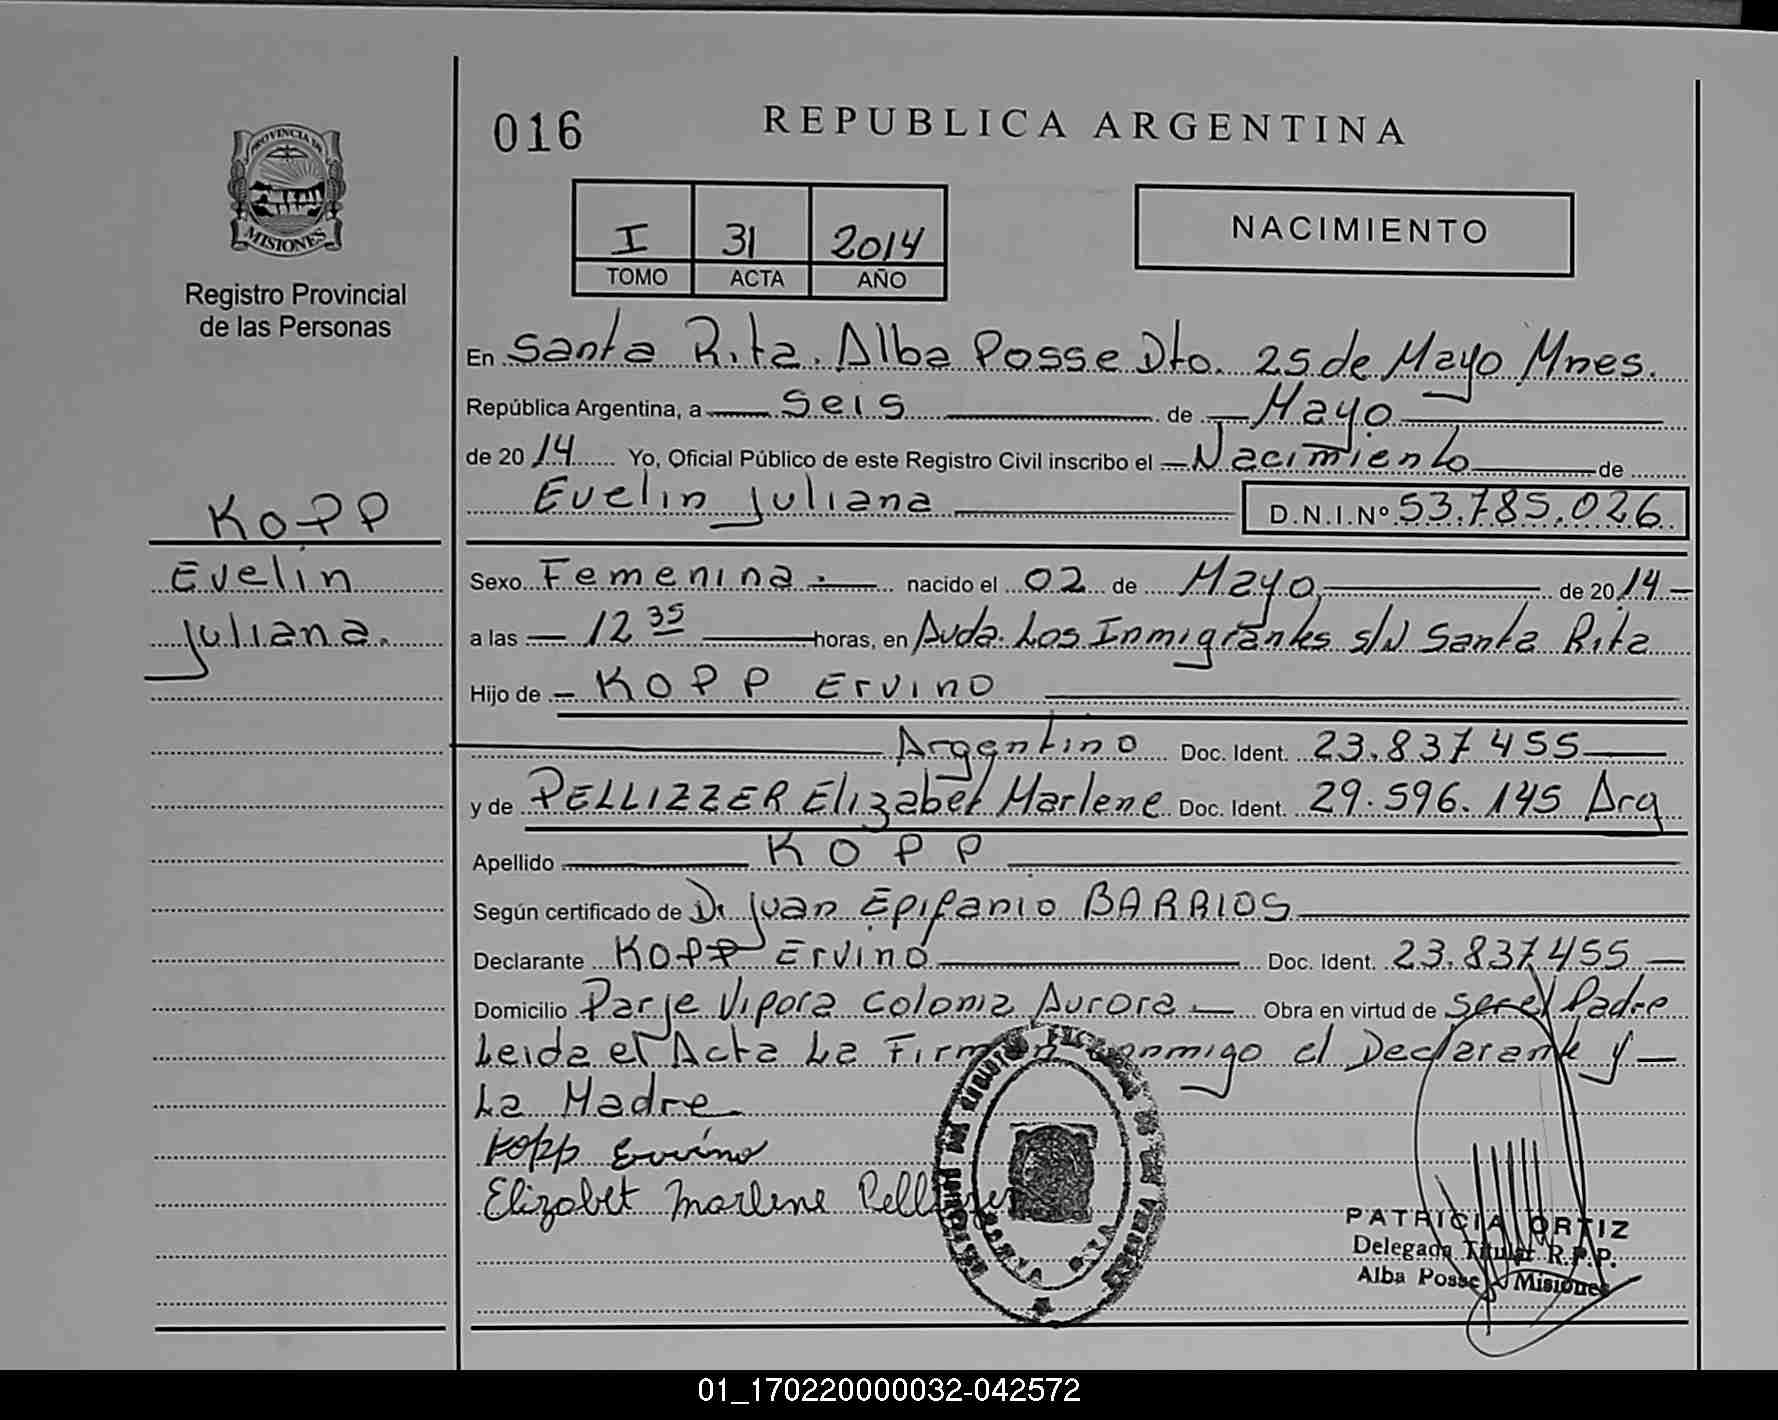 016
REPUBLICA ARGENTINA
PROVINCIA DE
MISIONES
Registro Provincial
de las Personas
I 31 2014
TOMO ACTA AÑO
NACIMIENTO
En Santa Rita. Alba Posse Dto. 25 de Mayo Mnes.
República Argentina, a Seis de Mayo
de 2014 Yo, Oficial Público de este Registro Civil inscribo el Nacimiento de
Evelin Juliana D.N.I.Nº 53.785.026
KOPP
Evelin
Juliana.
Sexo Femenina. nacido el 02 de Mayo de 2014
a las 12 35 horas, en Avda. Los Inmigrantes s/N Santa Rita
Hijo de KOPP Ervino
Argentino Doc. Ident. 23.837.455
y de PELLIZZER Elizabet Marlene Doc. Ident. 29.596.145 Arg
Apellido KOPP
Según certificado de Dr Juan Epifanio BARRIOS
Declarante KOPP Ervino Doc. Ident. 23.837.455
Domicilio Parje Vipora Colonia Aurora Obra en virtud de ser el Padre
Leida el Acta La Firman Conmigo el Declarante y
La Madre
Kopp Ervino
Elizabet Marlene Pellizzer
PATRICIA ORTIZ
Delegada Titular R.P.P.
Alba Posse Misiones
01_170220000032-042572